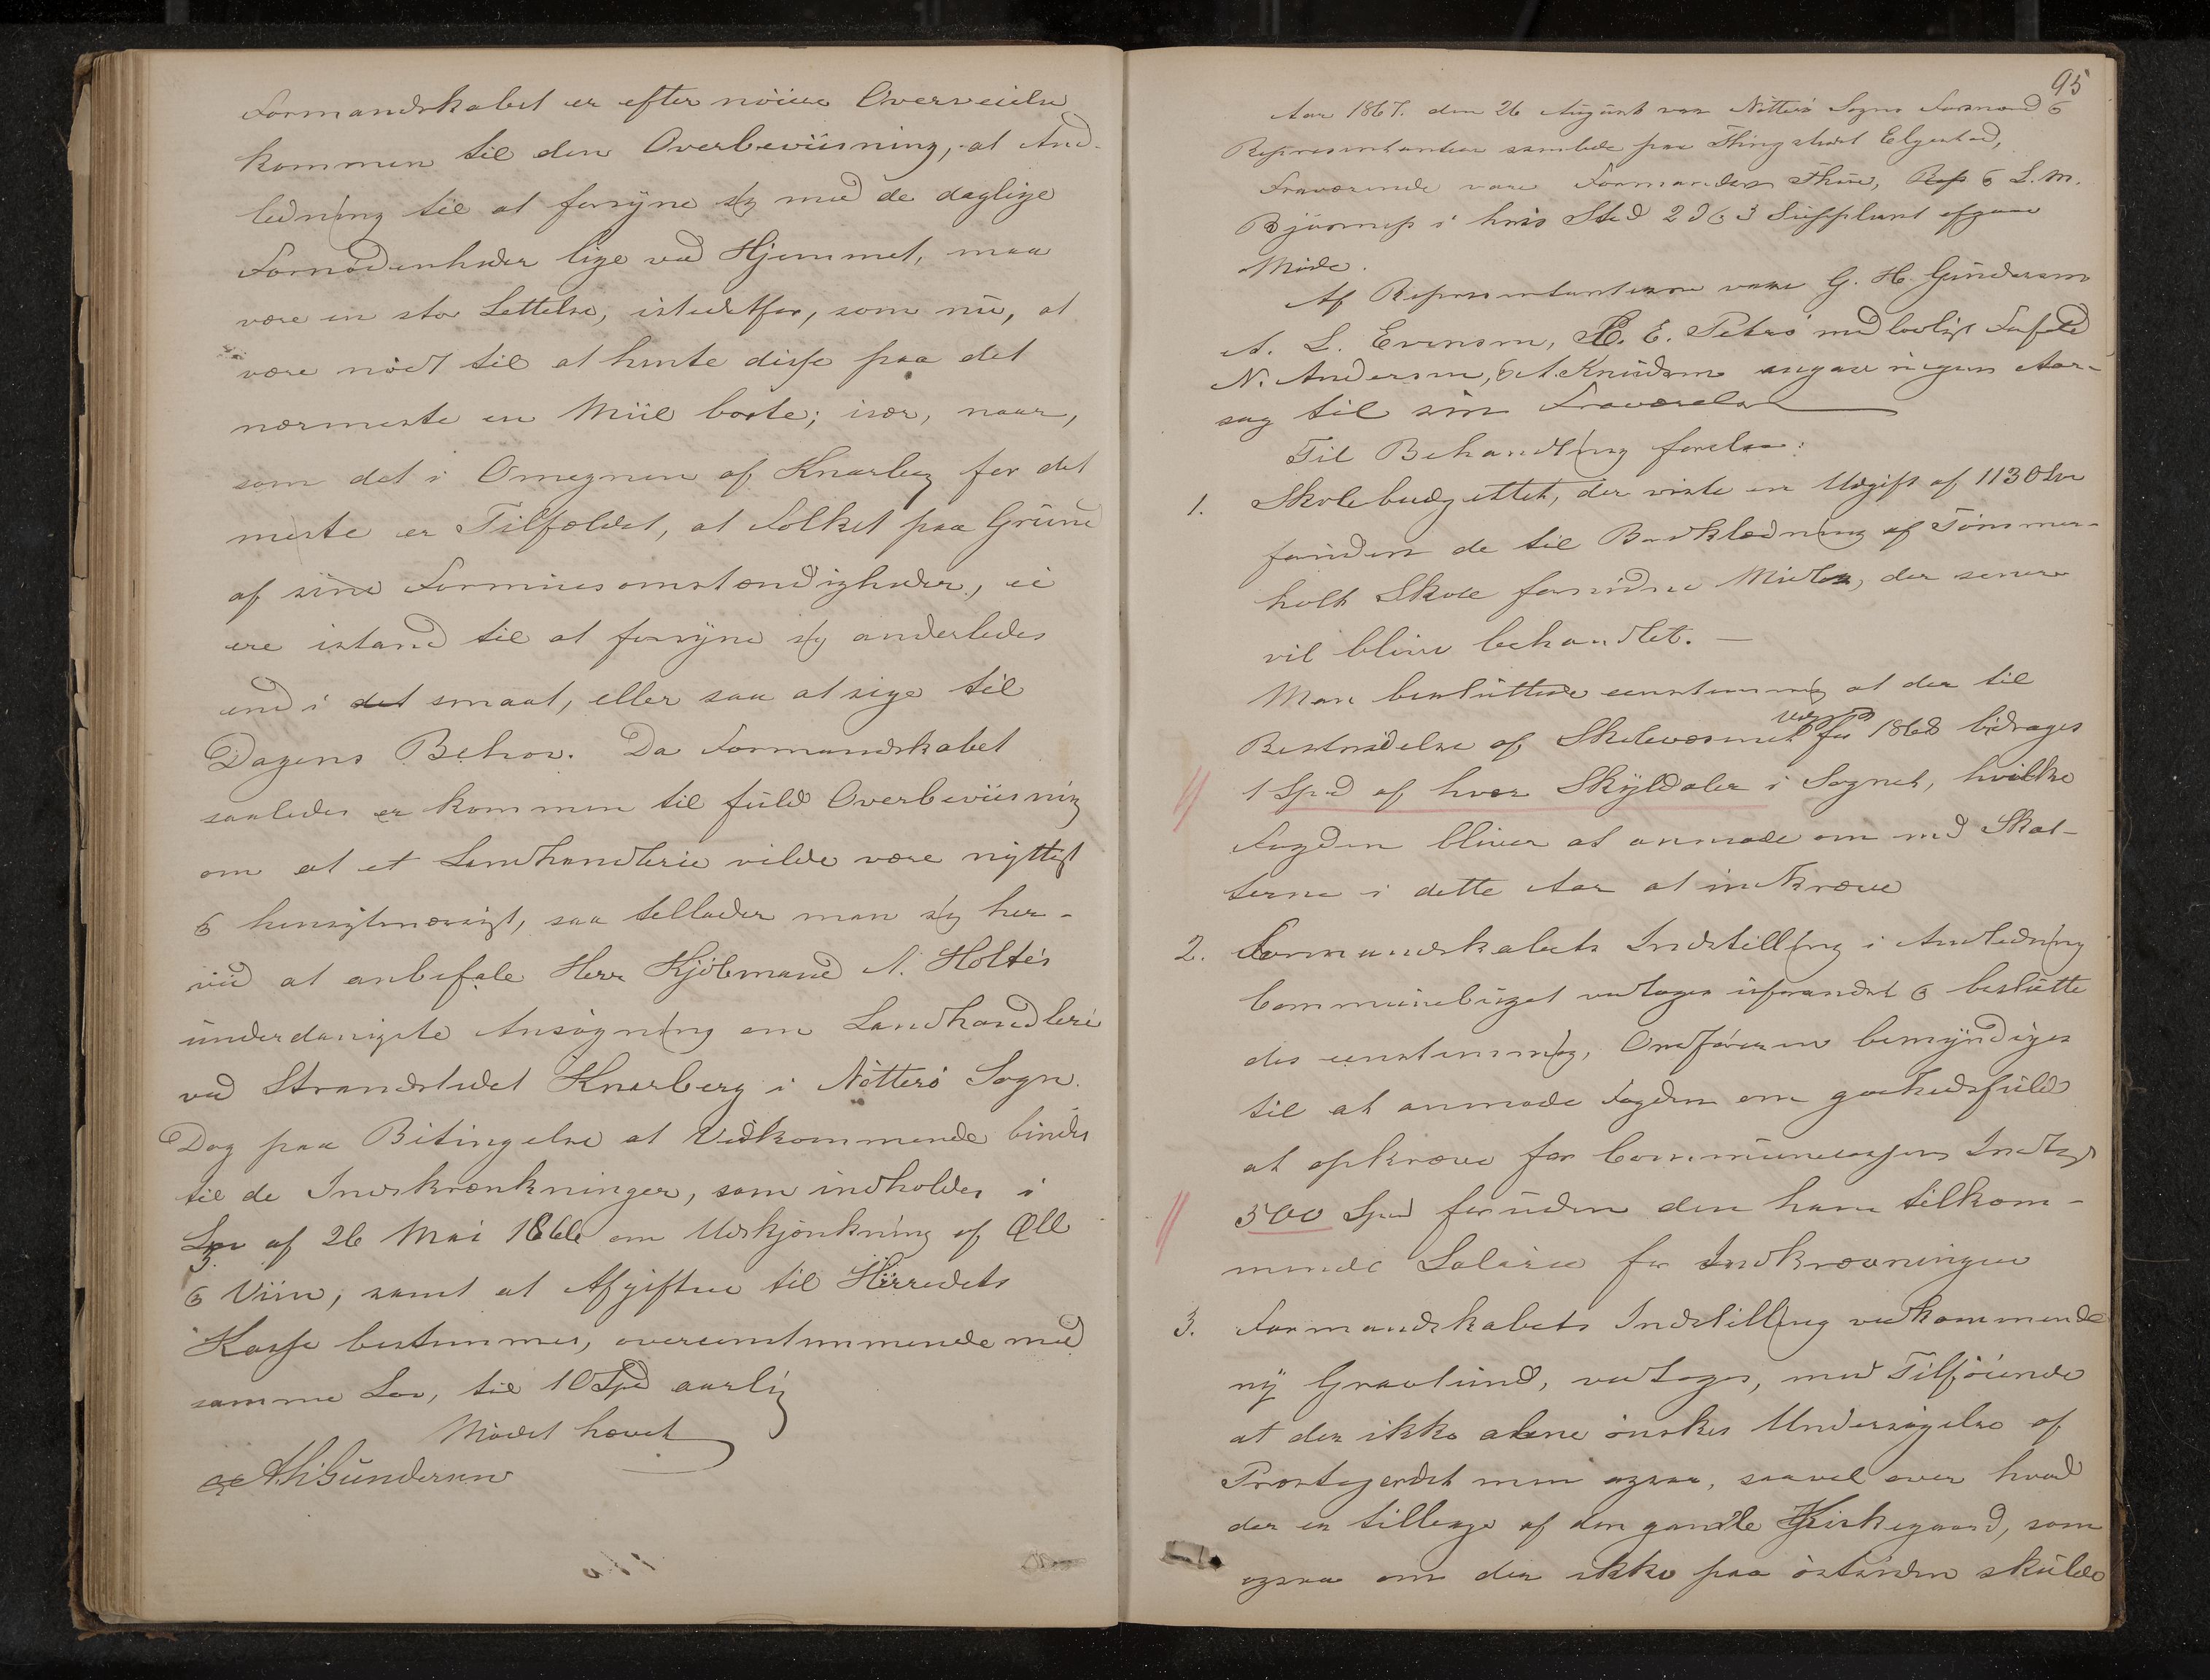 Formandskabet er efter nöiere Overveielse
kommen til den Overbeviisning, at And-
ledning til at forsyne sig med de daglige
Fornödenheder lige ved Hjemmet, maa
være en stor Lettelse, istedetfor, som nu, at
være nödt til at hente disse paa det
nærmeste en Miil borte; især, naar,
som det i Omegnen af Knarberg for det
meste er Tilfældet, at Folket paa Grund
af sine Formuesomstændigheder, ei
ere istand til at forsyne sig anderledes
end i det smaat, eller saa at sige til
Dagens Behov. Da Formandskabet
saaledes er kommen til fuld Overbeviisning
om at et Landhandlerie vilde være nyttigt
& hensigtmæssigt, saa tillader man sig her-
ved at anbefale Herr Kjöbmand A. Holtes
underdanigste Ansögning om Landhandleri
ved Strandstedet Knarberg i Nötterö Sogn.
Dog paa Betingelse at Vedkommende bindes
til de Indskrænkninger, som indholdes i
Lov af 26 Mai 1866 om Udskjænkning af Öll
& Viin, samt at Afgiften til Herredets
Kasse bestemmes, overeenstemmende med
samme Lov, til 10 Spd aarlig
Mödet hævet
A H Gundersen
95
Aar 1867. den 26 August var Nötterö Sogns Formænd &
Repræsentanter samlede paa Thingstedet Elgestad,
Fraværende vare Formanden Thue, Rep & L. M.
Bjönness i hvis Sted 2d & 3 Supplant
Möde.
Af Repræsentanterne vare G. H. Gundersen
A. L. Evensen, E. Petrö med lovligt Forfald
N. Andersen, & A. Knudsen angav ingen Aar-
sag til sin Fraværelse
Til Behandling forelaa:
1. Skolebudgettet, der viste en Udgift af 1130
foruden de til Bordklædning af Tömmer-
holt Skole fornödne Midler, der senere
vil blive behandlet. —
Man besluttede eenstemmig at der til
Bestridelse af Skolevæsenets Udgift for 1868 bidrages
1 Spd af hver Skylddaler i Sognet, hvilke
Fogden bliver at anmode om med Skat-
terne i dette Aar at indkræve
2. Formandskabets Indstilling i Anledning
Communebuget vedtoges uforandret & beslutte-
des eenstemmig, Ordföreren bemyndiges
til at anmode Fogden om godhedsfuldt
at opkræve for Communecassens Indtægt
500 Spd foruden den ham tilkom-
mende Salaire for Indkrævningen
3. Formandskabets Indstilling vedkommende
ny Gravlund, vedtoges, med Tilföiende
at der ikke alene önskes Undersögelse af
Præstegjerdet men ogsaa, saavel over hvad
der er tillengs af den gamle Kirkegaard, som
ogsaa om der ikke paa östsiden skulde